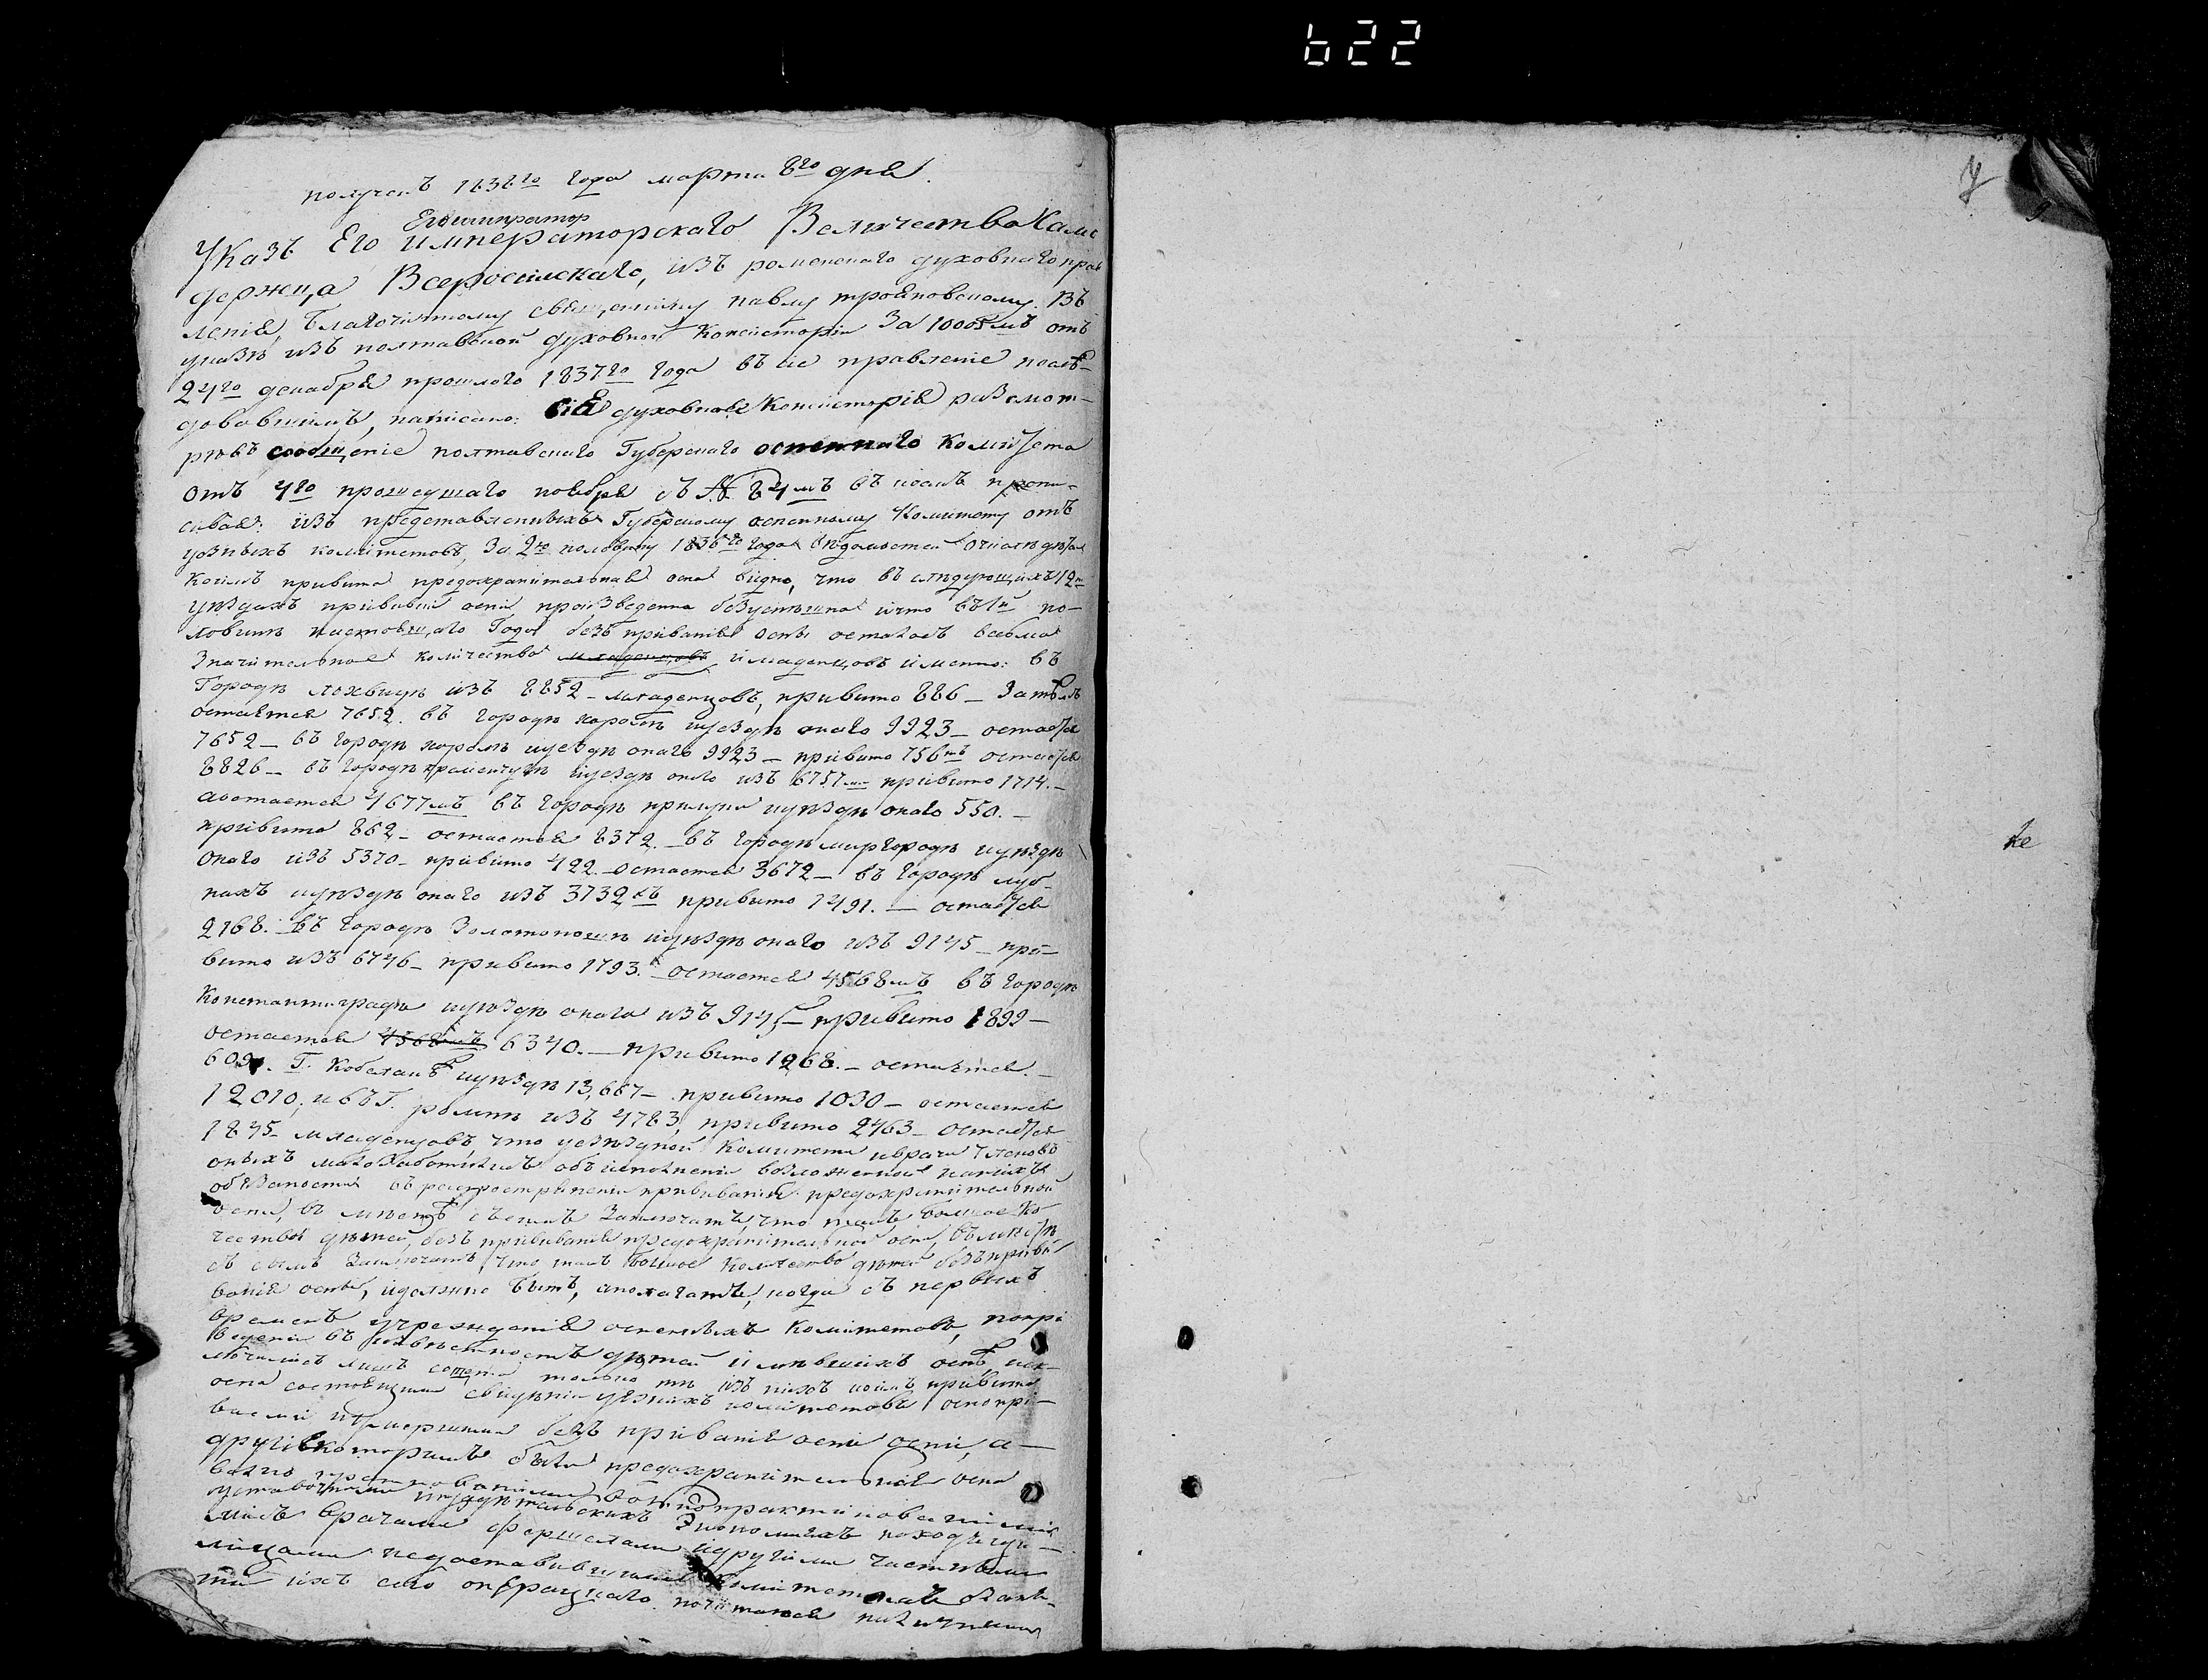 622
получен 1838го года марта 8го дня.
Его император
Указъ Его императорскаго Величества Само
держца Всеросийскаго, изъ роменскаго духовнаго прав
ления, благочинному священнику павлу трояновскому. Въ
указѣ изъ полтавской духовной Консистории За 10005мъ отъ
24го декабря прошлого 1837го года въ сіе правленіе послѣ-
довавшимъ, написано: сія духовная Консисторія разсмот-
рѣвъ сообщеніе полтавскаго Губерскаго оспеннаго Комитета
отъ 4го прошедшаго ноября съ № 84мъ въ коемъ пропи-
сывая: изъ представленныхъ Губерскому оспенному Комитету отъ
уезныхъ комитетовъ, За 2ю половину 1836го года вѣдомостей о числѣ дѣтей
коимъ привита предохранителная оспа видно, что въ слѣдующихъ 12ти
уѣздахъ прививки оспы произведенна безуспешна и что въ 1й по-
ловинѣ настоящаго Года безъ привитія оспы осталось весьма
Значителное количество младенцовъ и младенцовъ именно: въ
Городѣ лохвицѣ изъ 8852 - младенцовъ, привито 886 - Затѣмъ
остается 7652. въ городѣ хоролѣ иуездѣ онаго 9923 - остается
7652 - въ городѣ хоролѣ иуездѣ онаго 9923 - привито 756ти остается
8826 - въ Городѣ кременчугѣ иуездѣ онаго изъ 6757ми привито 1714. -
а остается 4677мъ въ городѣ прилуки иуѣздѣ онаго 550. -
привито 862 - остается 8372. - въ городѣ миргородѣ иуѣздѣ
онаго изъ 5370 - привито 422. - остается 3672 - въ городѣ луб-
нахъ иуѣздѣ онаго изъ 3732хъ привито 1491. - остается
2168. - въ городѣ Золотоношѣ иуѣздѣ онаго изъ 9145 - при-
вито изъ 6746 - привито 1793. - остается 4568мъ въ городѣ
Константиградѣ иуѣздѣ онаго изъ 9145 - привито 1899 -
остается 4568мъ 6340. - привито 1268. - остается. -
609. Г. Кобелякѣ иуѣздѣ 13,667 - привито 1030 - остается
12010; и въ Г. ромнѣ изъ 4783, привито 2463 - остается
1845 - младенцовъ, что уезѣздной Комитети и врачи членовъ
оныхъ малоЗаботились объ исполненіи возложенной на нихъ
обязаности въ распространеніи прививанія предохранителной
оспы, въ мѣстѣ съ симъ Заключать, что такъ болшое ко-
чество дѣтей, безъ прививанія предохранителной оспы, въ мѣстѣ
съ симъ Заключать, что такъ болшое количество дѣтей безъ приви-
ванія оспы, и должно быть, а полагать, когда съ первыхъ
времянъ учрежденія оспенныхъ Комитетовъ, попри
ведени въ извѣстность дѣтей имѣвшихъ оспу, иск-
лючались лишъ только тѣ изъ нихъ коимъ привита
оспа состоящими свидѣніи уѣзныхъ комитетовъ оспопри-
безъ привитія оспи оспи, а -
другія которимъ была предохранителная оспа
Экономіяхъ находящи-
мись врачами фершелами идругими частными
лицами недоставившими Комитетамъ
ти ихъ сего
у
ке